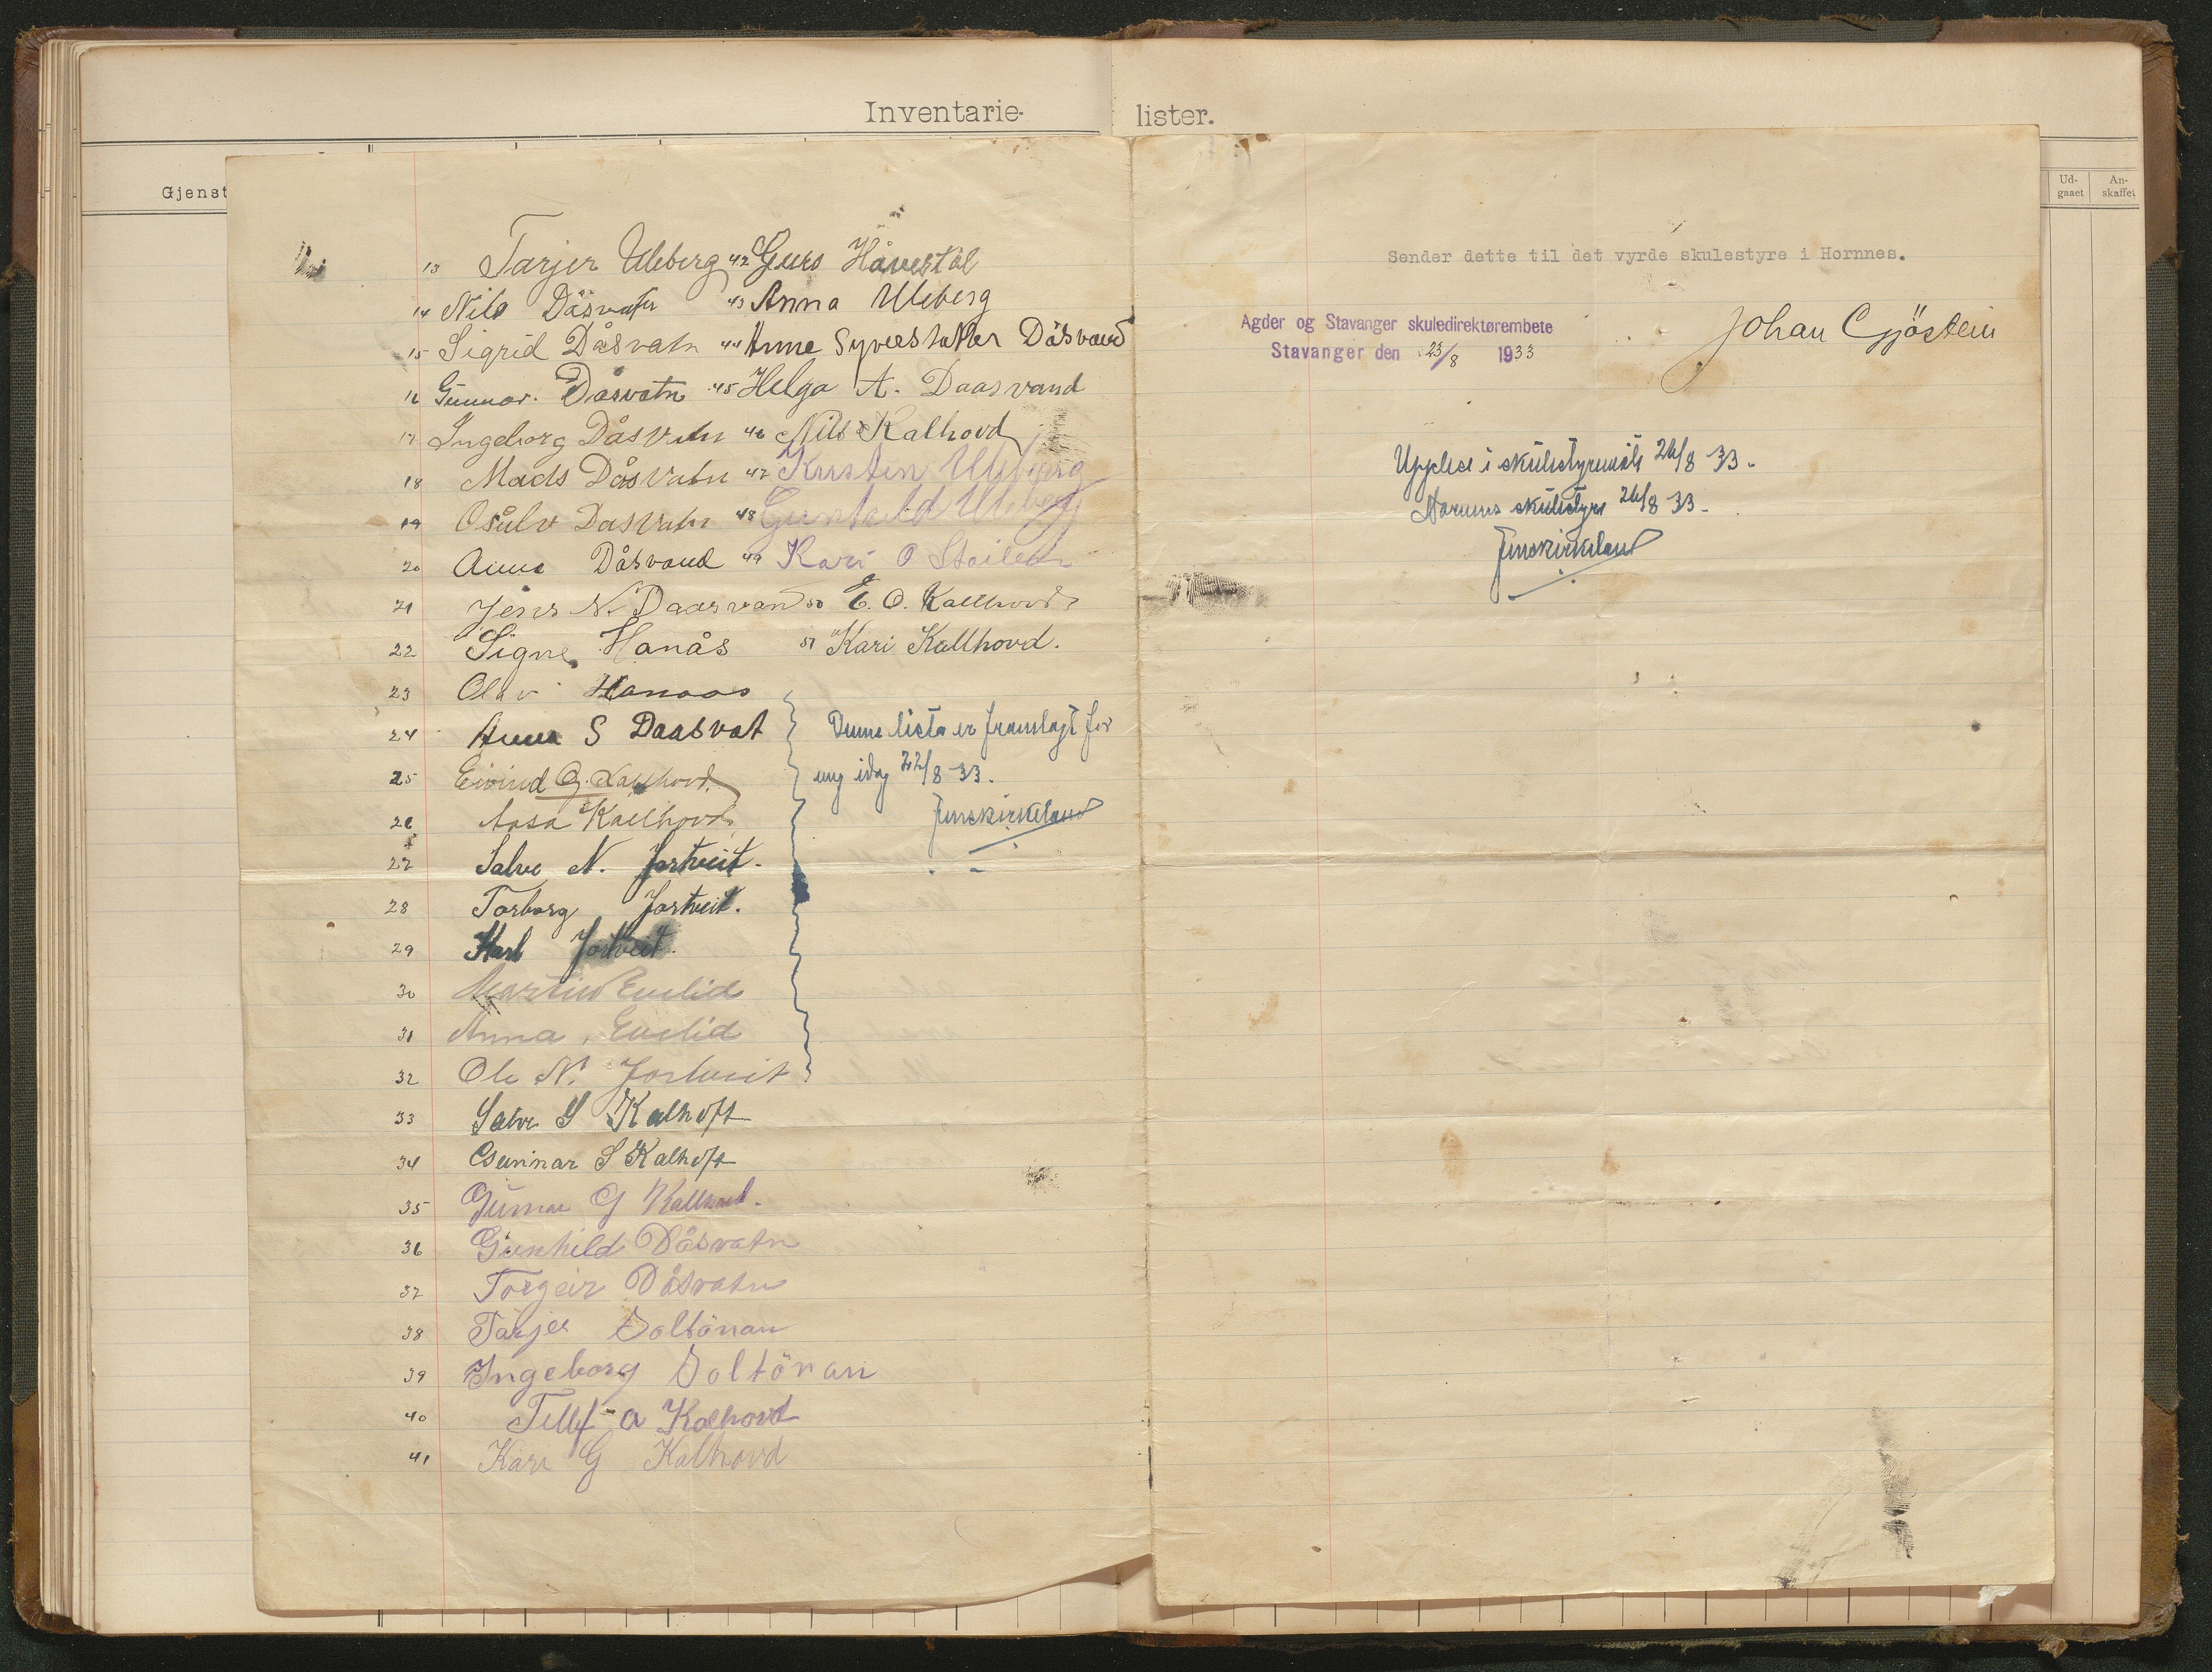 Inventarie-
lister.
Gjenst
Ud-
gaaet
An-
skaffet
13 Tarjer Uleberg 42 Guro Håvestøl
14 Nils Dåsvatn 43 Anna Uleberg
15 Sigrid Dåsvatn 44 Anne Dåsvand
16 Gunnar Dåsvatn 45 Helga A. Daasvand
17 Ingeborg Dåsvatn 46 Nils Kalhovd
18 Mads Dåsvatn 47 Kristen Uleberg
19 Osulv Dasvatn 48 Gunhild Uleberg
20 Anna Dåsvand 49 Kari O
21 Jens N. Daasvand 50 E. O. Kallhovd
22 Signe Hanås 51 Kari Kallhovd.
23 Olav Hanaas
24 Anna S Daasvat
25 Eivind G. Kallhovd.
26 Aasa Kallhovd
27 Salve N. Jortveit.
28 Torborg Jortveit.
29 Karl Jortveit.
30 Martin Evelid
31 Anna, Evelid
32 Ole N. Jortveit
33 Salve S Kalhoft
34 Gunnar S Kalhoft
35 Gunnar G Kallhovd.
36 Gunhild Dåsvatn
37 Torgeir Dåsvatn
38 Tarjer Soltönan
39 Ingeborg Soltönan
40 Tellef a Kalhovd
41 Kari G Kalhovd
Denne lista er framlagt for
meg idag 22/8 33.
Jens Kirkeland
Sender dette til det vyrde skulestyre i Hornnes.
Agder og Stavanger skuledirektørembete
Stavanger den 23/8 1933
Johan Gjöstein
Upplese i skulestyremöte 26/8 33.
Hornnes skulestyre 26/8 33.
Jens Kirkeland